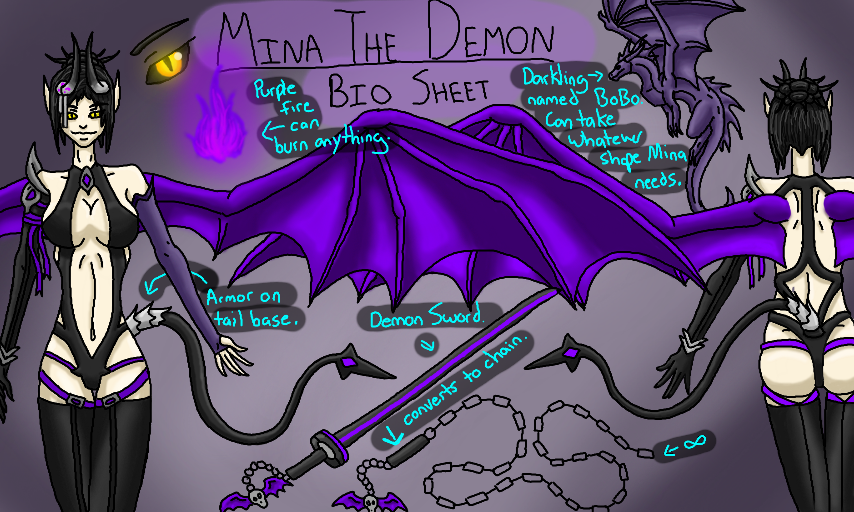 MINA THE DEMON
BIO SHEET
Purple
fire
can
burn anything.
Darkling
named BoBo
Can take
whatever
shape Mina
needs.
Armor on
tail base.
Demon Sword.
converts to chain.
∞